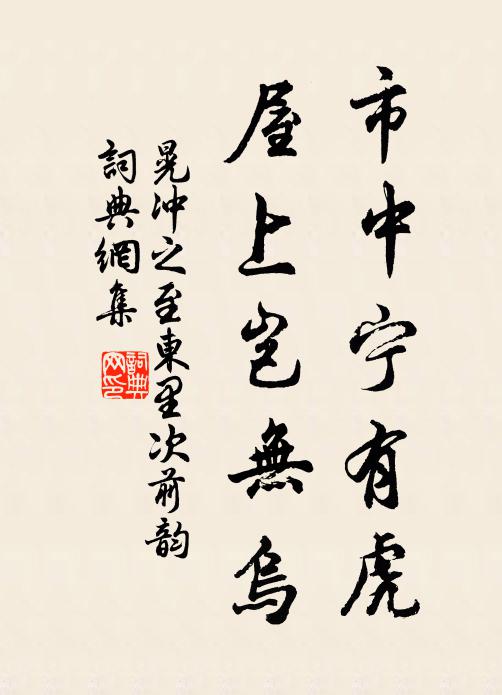 市中宁有虎
屋上岂無烏
晁冲之至東里次前韵
詞典網集
詞典
网印